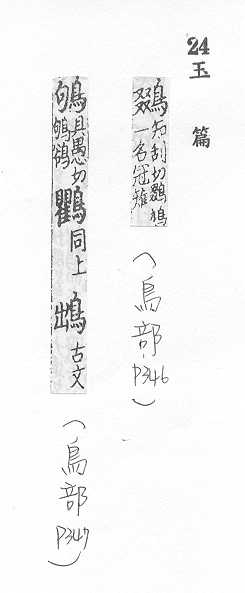 24 玉篇
鵽 知刮切鵽鳩一名冠雉
(鳥部 P346)
鴝 具愚切鴝鵒 鸜 同上 古文
(鳥部 P347)